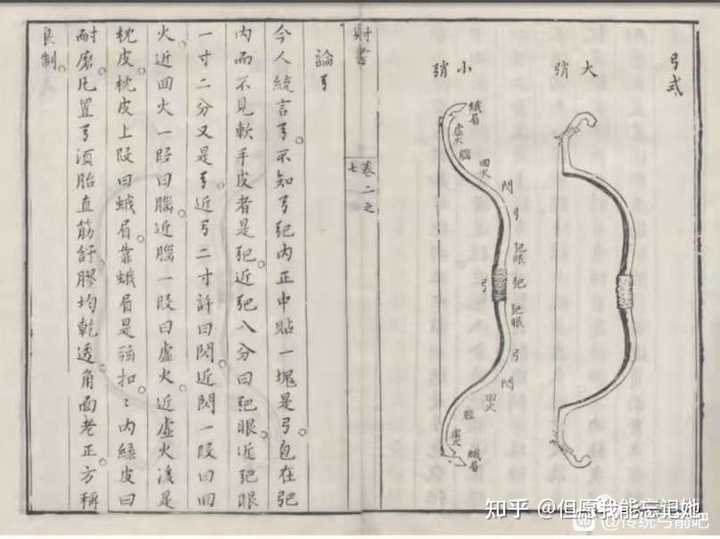 弓式
大弰
小弰
蛾眉
虛火
腦
囬火
閃
弓
弝眼
弝
弝眼
弓
閃
囬火
腦
虛火
蛾眉
弓
射書
卷二之
七
論弓
今人統言弓。不知弓弝內正中貼一塊是弓。包在弝
內而不見軟手皮者是弝。近弝八分曰弝眼。近弝眼
一寸二分又是弓。近弓二寸許曰閃。近閃一段曰囬
火。近囬火一段曰腦。近腦一段曰虛火。近虛火淺是
枕皮。枕皮上段曰蛾眉。靠蛾眉是扣。〻內綠皮曰
耐磨。凡置弓須胎直筋舒。膠均乾透。角面老正。方稱
良制。
知乎 @但愿我能忘记她
@传统弓箭吧